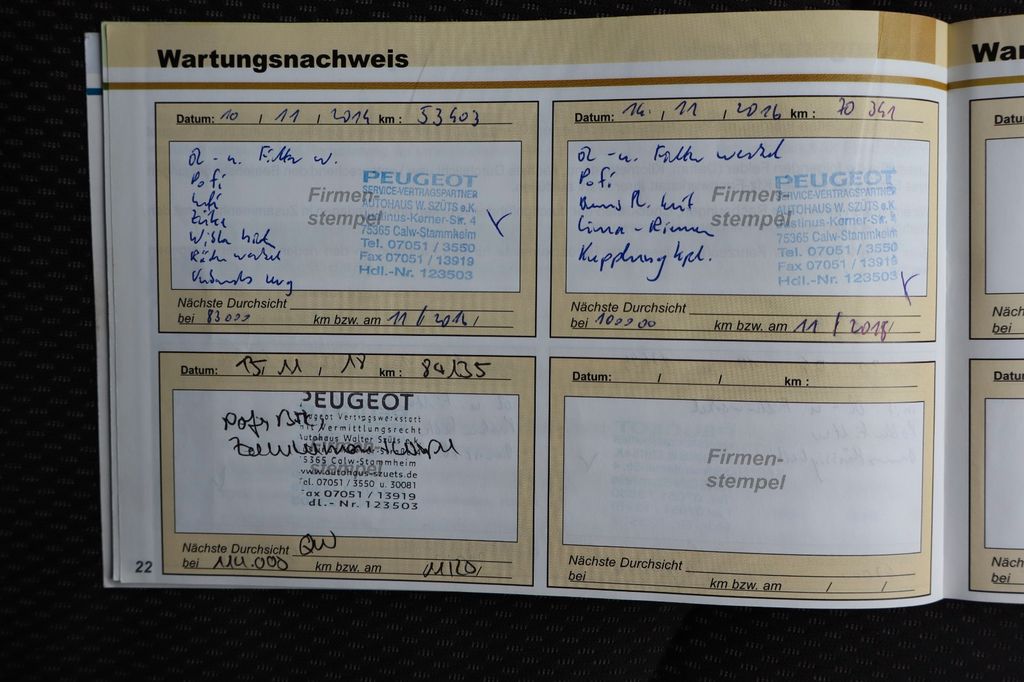 Wartungsnachweis
War
Datum: 10 / 11 / 2014 km : 53403
Öl - u. Filter w.
Pofi
Lufi
PEUGEOT
SERVICE-VERTRAGSPARTNER
AUTOHAUS W. SZÜTS e.K.
Justinus-Kerner-Str. 4
75365 Calw-Stammheim
Tel. 07051 / 3550
Fax 07051 / 13919
Hdl.-Nr. 123503
Firmen-
stempel
Nächste Durchsicht
bei 83000 km bzw. am 11 / 2016 /
Datum: 14. / 11 / 2016 km : 70 341
Öl - u. Filter wechsel
Pofi
Lima - Riemen
Kupplung kpl.
PEUGEOT
SERVICE-VERTRAGSPARTNER
AUTOHAUS W. SZÜTS e.K.
Justinus-Kerner-Str. 4
75365 Calw-Stammheim
Tel. 07051 / 3550
Fax 07051 / 13919
Hdl.-Nr. 123503
Firmen-
stempel
Nächste Durchsicht
bei 100000 km bzw. am 11 / 2018 /
Datum: 15 / 11 / 18 km : 84135
PEUGEOT
Peugeot Vertragswerkstatt
mit Vermittlungsrecht
Autohaus Walter Szüts e.K.
75365 Calw-Stammheim
www.autohaus-szuets.de
Tel. 07051 / 3550 u. 30081
Fax 07051 / 13919
Hdl.- Nr. 123503
Nächste Durchsicht
bei 114.000 km bzw. am 11/20/
Datum: / / km :
Firmen-
stempel
Nächste Durchsicht
bei km bzw. am / /
22
Datu
Näch
bei
Datu
Näch
bei